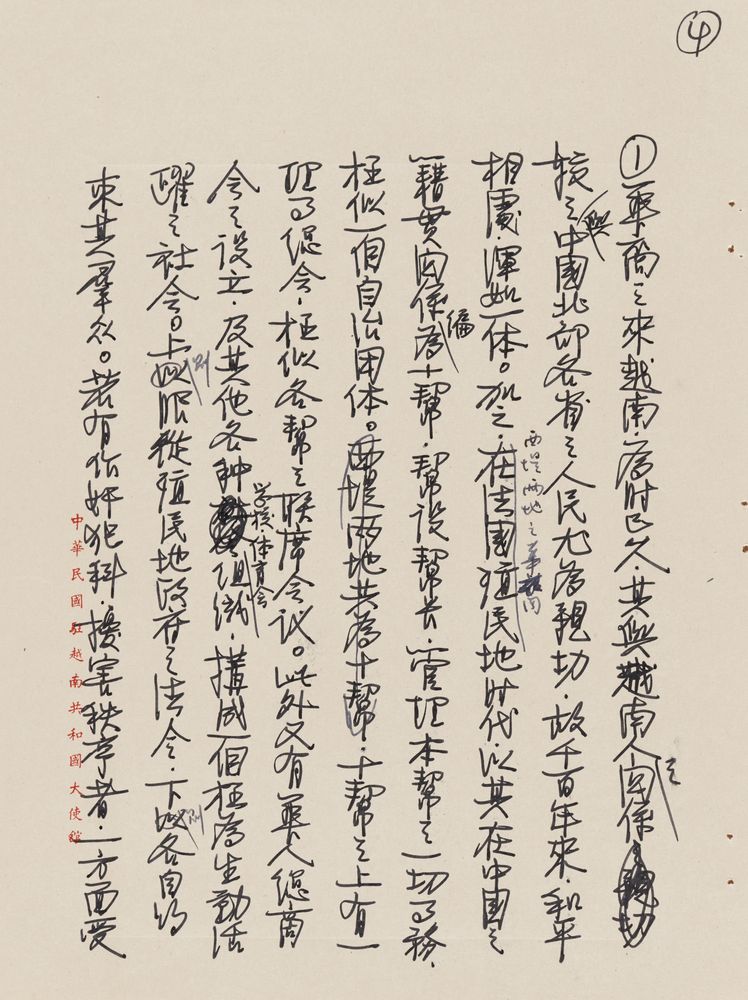 ④
①華商之來越南，為时已久，其與越南人之関係
較之與中國北部各省之人民尤為親切，故千百年來，和平
相處，渾如一体。加之，在法國殖民地时代，以其在中國之
西堤兩地之華
籍貫関係編為十幫，幫設幫长，管理本幫之一切事務，
極似一個自治団体。西堤兩地共為十幫，十幫之上有一
理事總会，極似各幫之联席会议。此外又有華人總商
会之设立，及其他各种学校体育会組織，構成一個極為生動活
躍之社会。上則服從殖民地政府之法令，下則各自约
束其羣众。若有作奸犯科，擾害秩序者，一方面受
中華民國駐越南共和國大使館